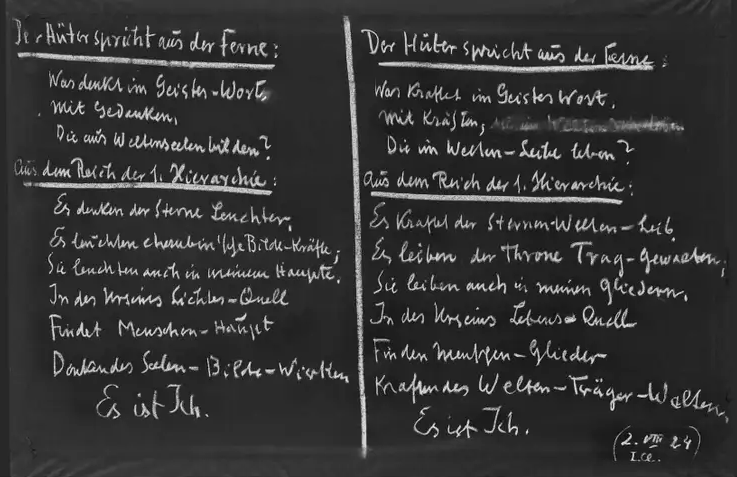 Der Hüter spricht aus der Ferne:
Was denkt im Geistes-Wort,
Mit Gedanken,
Die aus Weltenseelen bilden?
Aus dem Reich der 1. Hierarchie:
Es denken der Sterne Leuchter,
Es leuchten cherubin'sche Bilde-Kräfte;
Sie leuchten auch in meinem Haupte.
In des Urseins Lichtes-Quell
Findet Menschen-Haupt
Denkendes Seelen-Bilde-Wirken
Es ist Ich.
Der Hüter spricht aus der Ferne:
Was kraftet im Geistes Wort,
Mit Kräften,
Die im Welten-Leibe leben?
Aus dem Reich der 1. Hierarchie:
Es kraftet der Sternen-Welten-Leib,
Es leiben der Throne Trag-Gewalten;
Sie leiben auch in meinen Gliedern.
In des Urseins Lebens-Quell
Finden Menschen-Glieder
Kraftendes Welten-Träger-Walten,
Es ist Ich.
(2. VIII 24